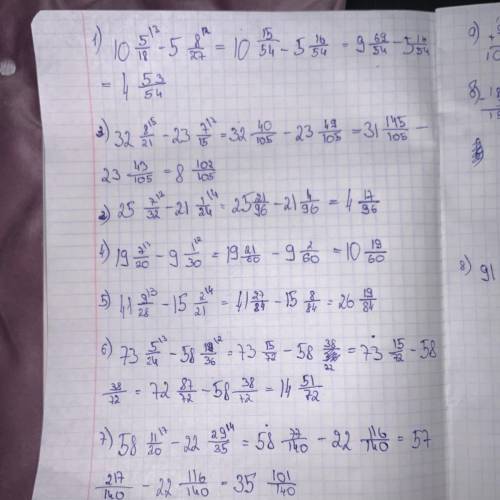 1) 10 5/18 ¹³ - 5 8/27 ¹² = 10 15/54 - 5 16/54 = 9 69/54 - 5 16/54
= 4 53/54
3) 32 8/21 ¹⁵ - 23 7/15 ¹⁷ = 32 40/105 - 23 49/105 = 31 145/105 -
23 43/105 = 8 102/105
2) 25 7/32 ¹² - 21 1/24 ¹⁴ = 25 21/96 - 21 4/96 = 4 17/96
4) 19 7/20 - 9 1/30 ¹² = 19 21/60 - 9 2/60 = 10 19/60
5) 41 9/28 ¹³ - 15 2/21 ¹⁴ = 41 27/84 - 15 8/84 = 26 19/84
6) 73 5/24 ¹³ - 58 19/36 ¹² = 73 15/72 - 58 38/72 = 73 15/72 - 58
38/72 = 72 87/72 - 58 38/72 = 14 51/72
7) 58 11/20 ¹⁷ - 22 29/35 ¹⁴ = 58 77/140 - 22 116/140 = 57
217/140 - 22 116/140 = 35 101/140
8) 91